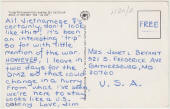 All Vietnamese By
certainly don't look
like this! It's been
an interesting trip
so far with little
mention of the war.
HOWEVER, I leave in
two days for the
DMZ so that could
change in a hurry.
From what I've seen,
we're here to stay.
Looks like a U.S.
Love, Jim
FREE
Mrs. Janet L. Bryant
521 S. Frederick Ave
Gaithersburg, MD
20760
U.S.A.